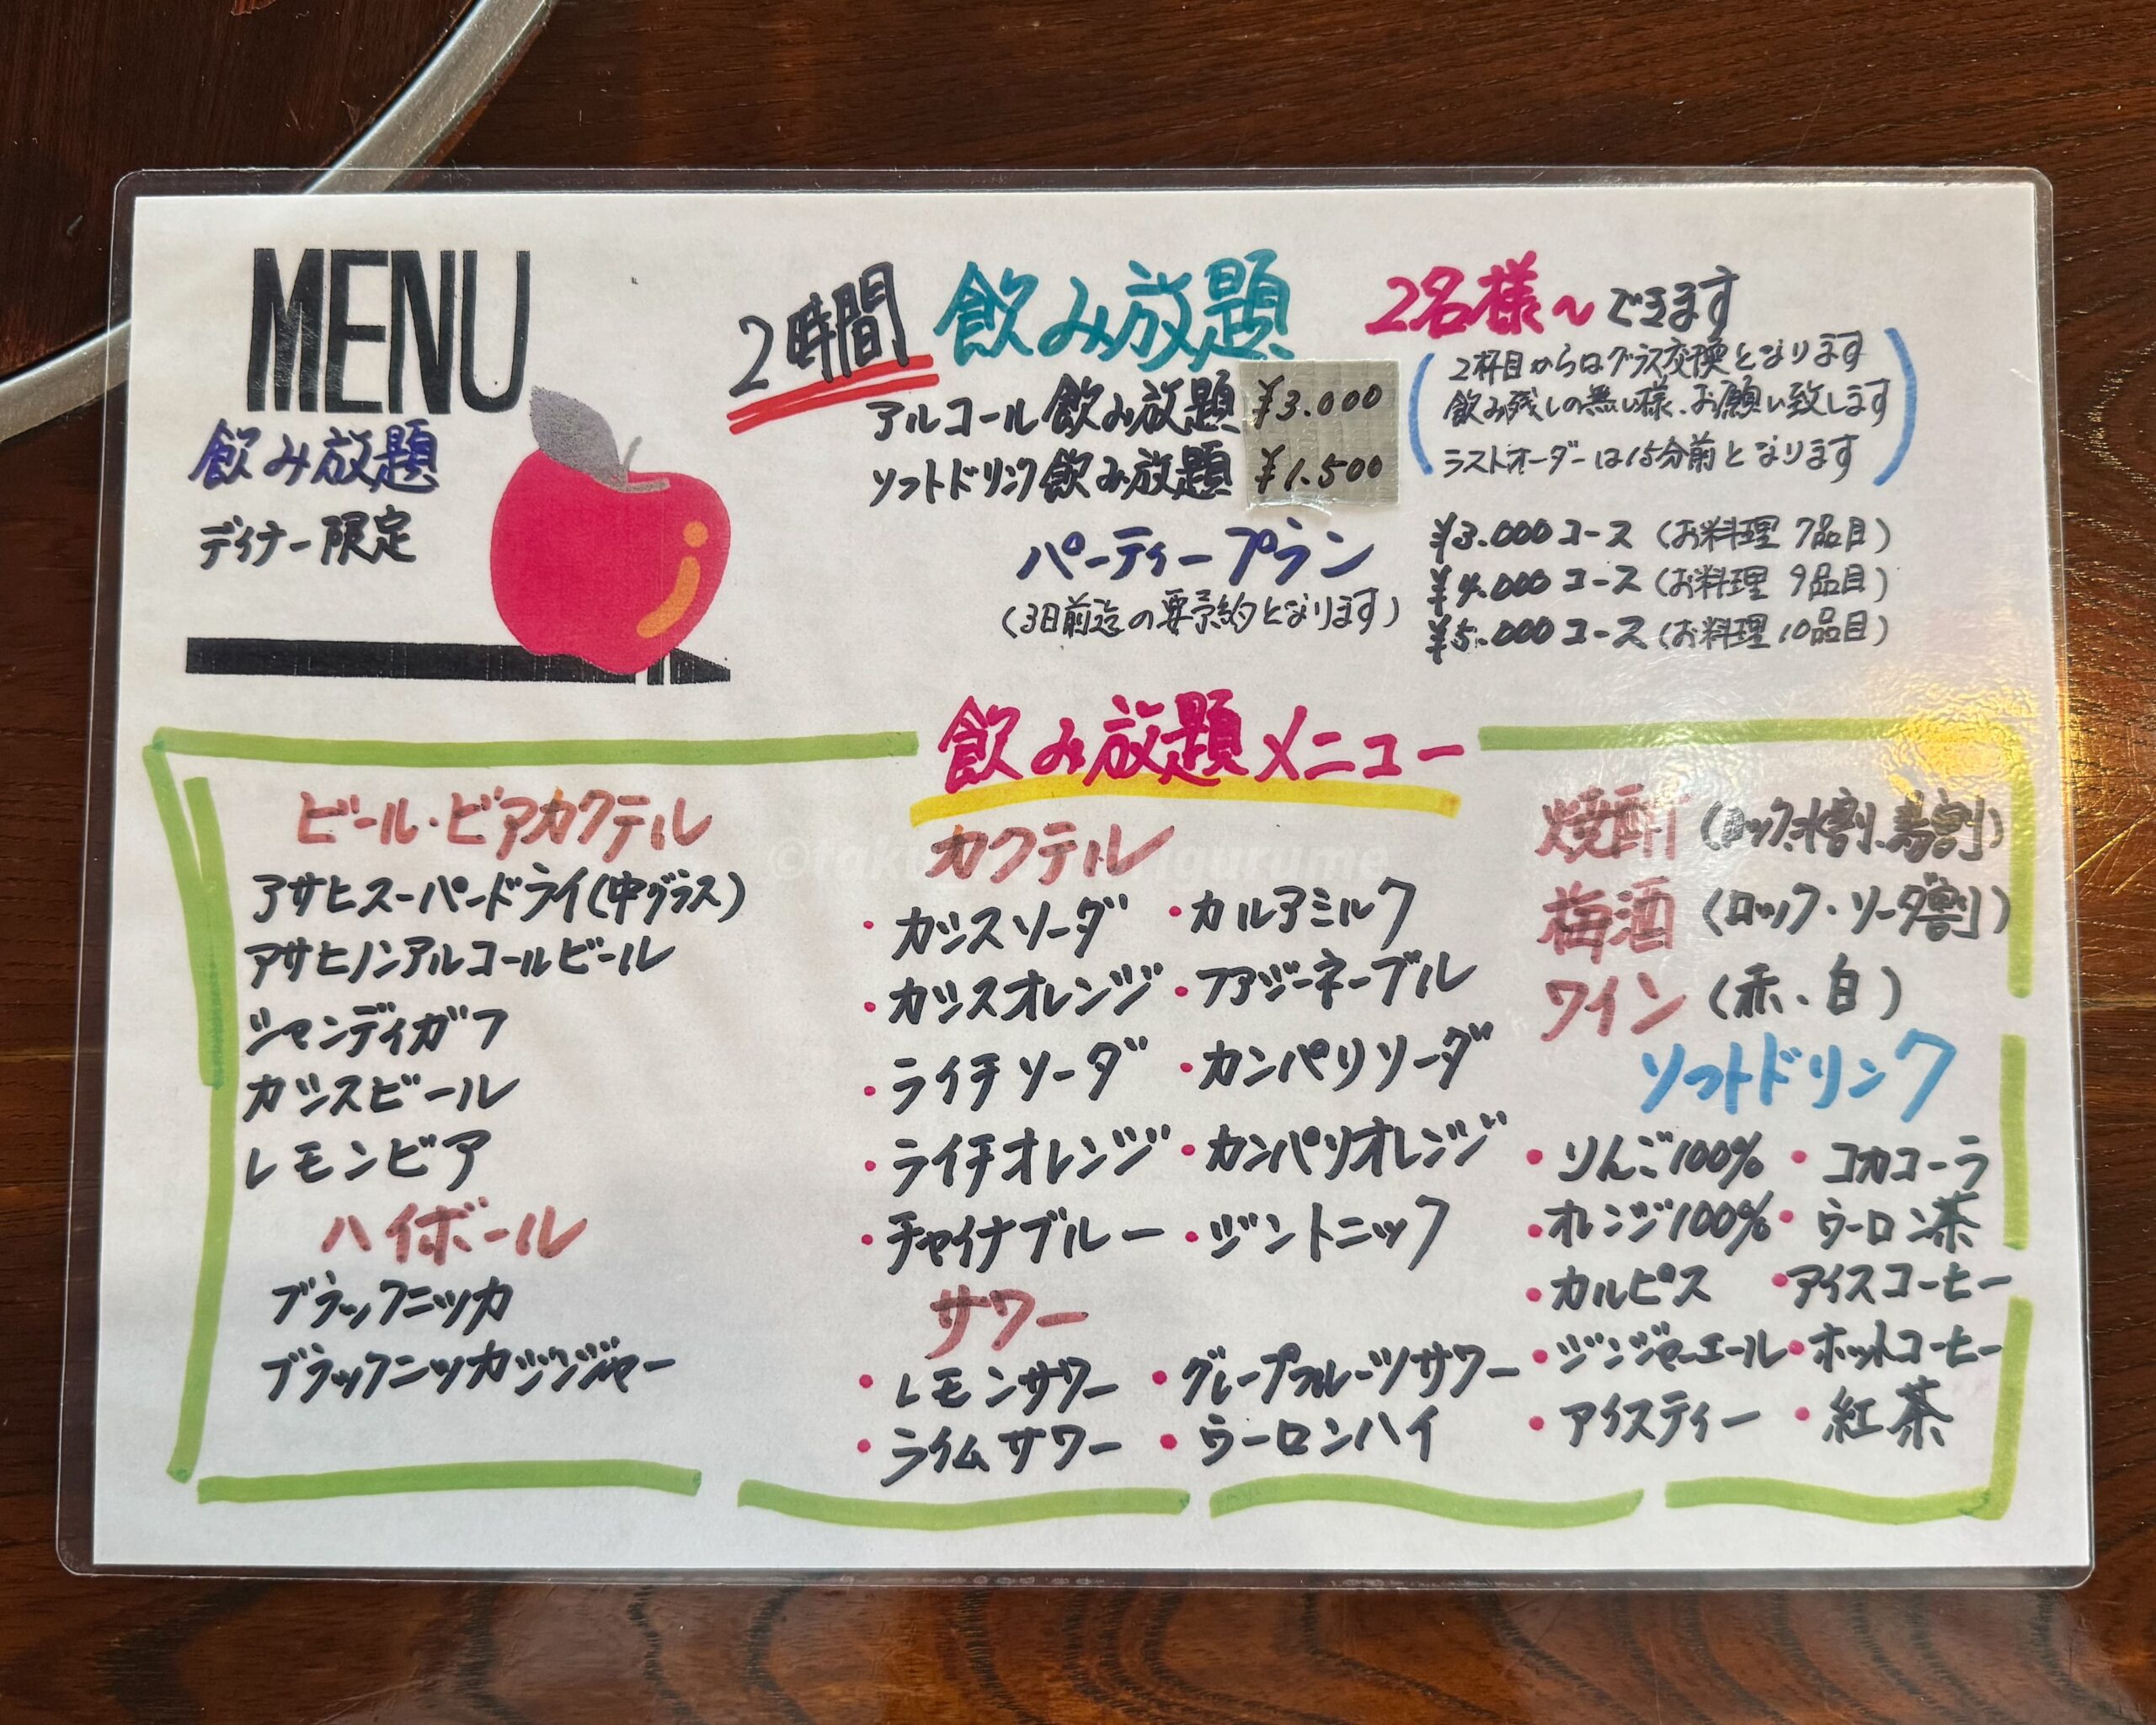 MENU
飲み放題
ディナー限定
2時間 飲み放題 2名様〜できます
アルコール飲み放題 ¥3.000
ソフトドリンク飲み放題 ¥1.500
(2杯目からはグラス交換となります
飲み残しの無い様、お願い致します
ラストオーダーは15分前となります)
パーティープラン
(3日前迄の要予約となります)
¥3.000コース(お料理 7品目)
¥4.000コース(お料理 9品目)
¥5.000コース(お料理 10品目)
飲み放題メニュー
ビール・ビアカクテル
アサヒスーパードライ(中グラス)
アサヒノンアルコールビール
シャンディガフ
カシスビール
レモンビア
ハイボール
ブラックニッカ
ブラックニッカジンジャー
カクテル
・カシスソーダ ・カルアミルク
・カシスオレンジ ・ファジーネーブル
・ライチソーダ ・カンパリソーダ
・ライチオレンジ ・カンパリオレンジ
・チャイナブルー ・ジントニック
サワー
・レモンサワー ・グレープフルーツサワー
・ライムサワー ・ウーロンハイ
焼酎(ロック、水割、湯割)
梅酒(ロック・ソーダ割)
ワイン(赤、白)
ソフトドリンク
・りんご100% ・コカコーラ
・オレンジ100% ・ウーロン茶
・カルピス ・アイスコーヒー
・ジンジャーエール ・ホットコーヒー
・アイスティー ・紅茶